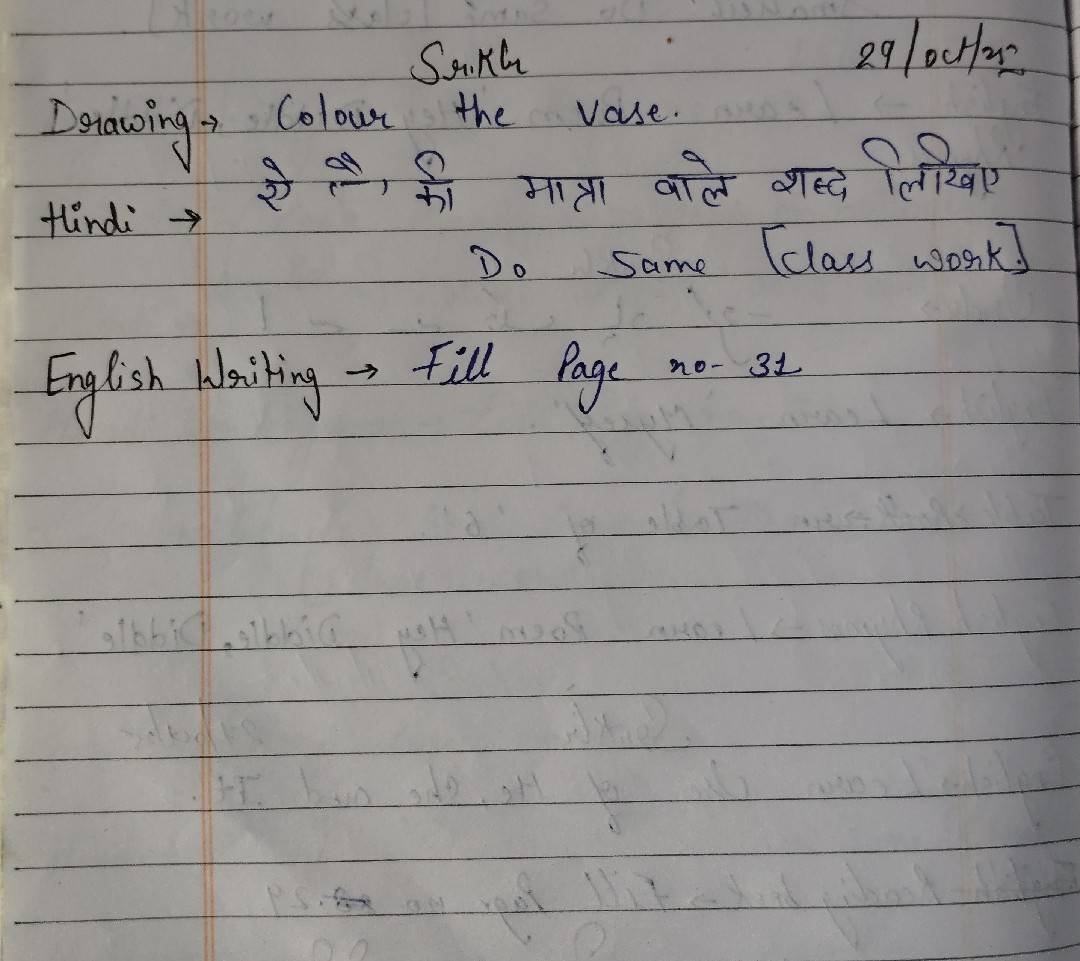 Sr.KG 29/Oct/
Drawing → Colour the vase.
Hindi → ऐ की मात्रा वाले शब्द लिखिए
Do Same [Class work]
English Writing → Fill Page no- 31